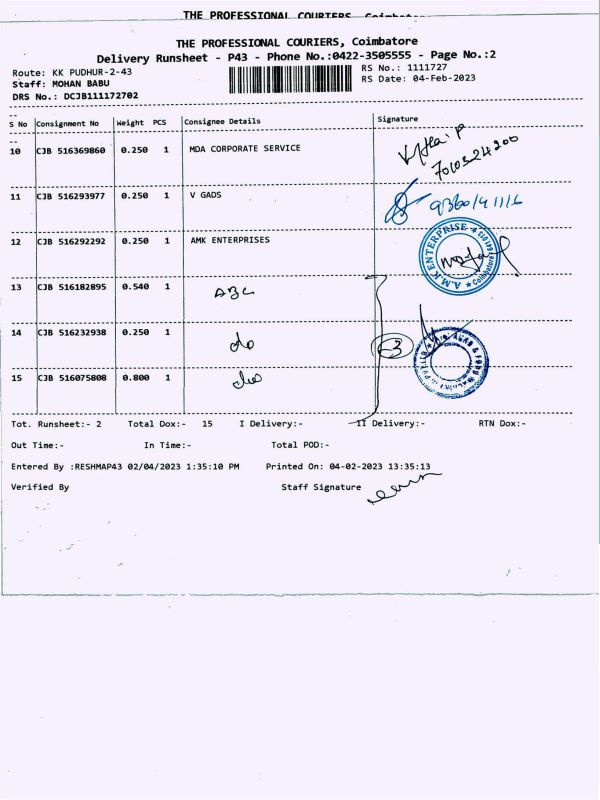 THE PROFESSIONAL COURIERS, Coimbatore
THE PROFESSIONAL COURIERS, Coimbatore
Delivery Runsheet - P43 - Phone No.:0422-3505555 - Page No.:2
Route: KK PUDHUR-2-43
RS No.: 1111727
Staff: MOHAN BABU
RS Date: 04-Feb-2023
DRS No.: DCJB111172702
S No Consignment No Weight PCS Consignee Details Signature
10 CJB 516369860 0.250 1 MDA CORPORATE SERVICE
7010324200
11 CJB 516293977 0.250 1 V GADS
12 CJB 516292292 0.250 1 AMK ENTERPRISES
A.M.K ENTERPRISE
Coimbatore
13 CJB 516182895 0.540 1 ABC
14 CJB 516232938 0.250 1 do
3
15 CJB 516075808 0.800 1 do
Tot. Runsheet:- 2 Total Dox:- 15 I Delivery:- II Delivery:- RTN Dox:-
Out Time:- In Time:- Total POD:-
Entered By :RESHMAP43 02/04/2023 1:35:10 PM Printed On: 04-02-2023 13:35:13
Verified By Staff Signature